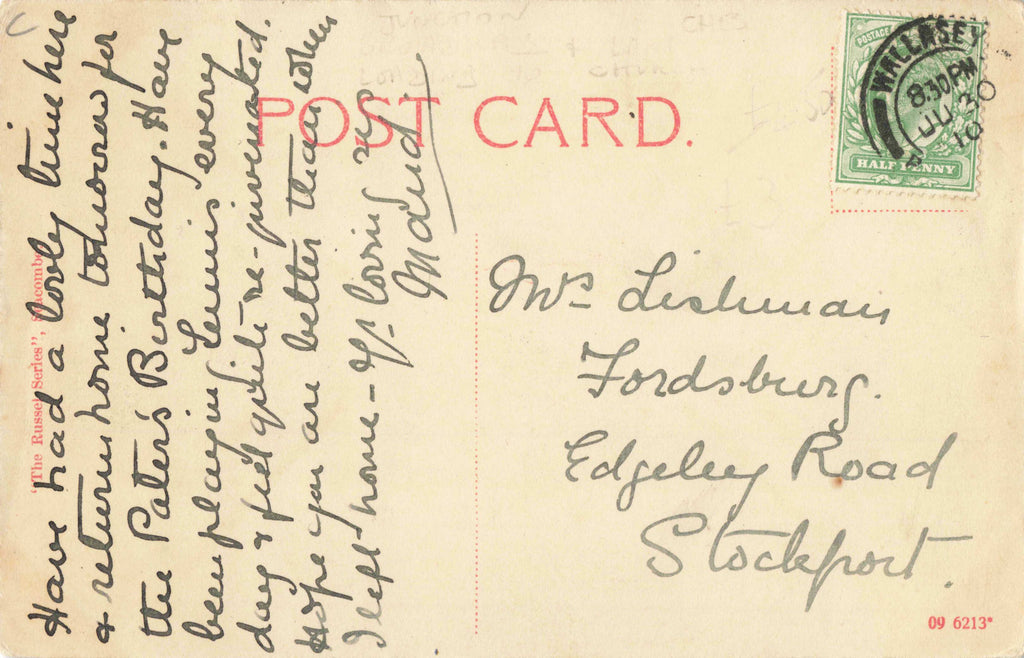 POST CARD.
WALLASEY
8.30 PM
JU 30
10
POSTAGE
HALFPENNY
Have had a lovely time here
& return home tomorrow for
the Pater's Birthday. Have
been playing Tennis every
day & feel quite re-juvinated.
Hope you are better than when
I left home - Yr loving
Maud
Mrs Lishman
Fordsburg.
Edgeley Road
Stockport.
"The Russel Series",
09 6213*